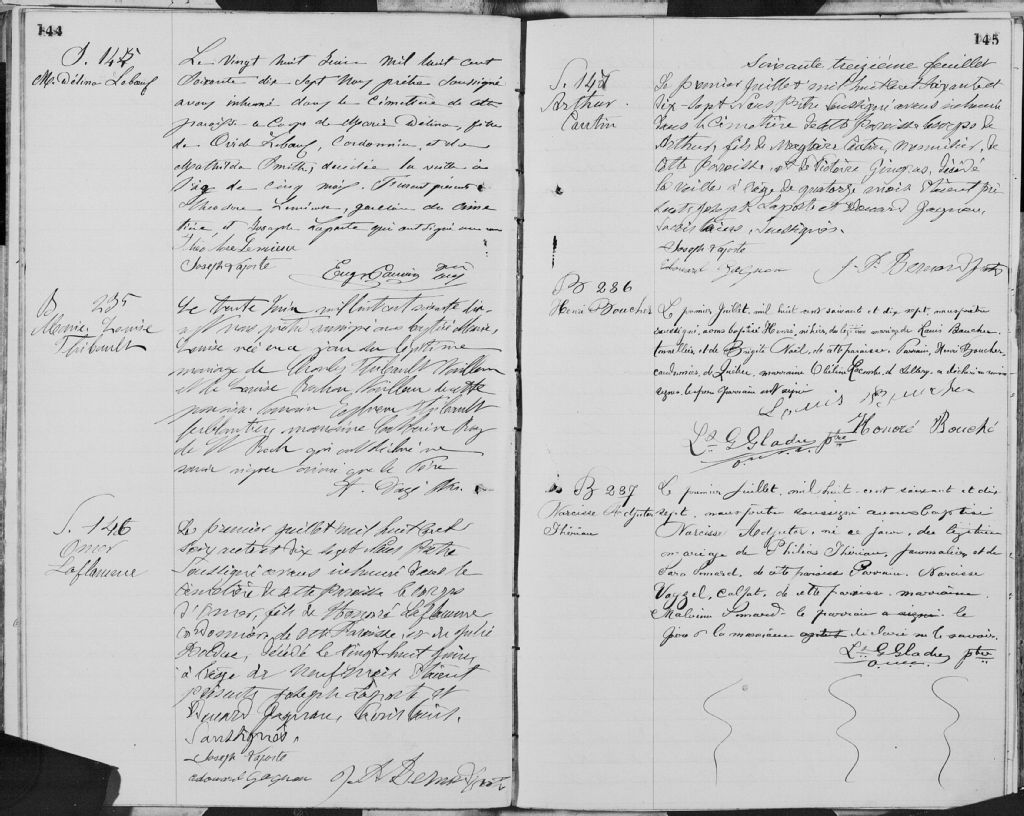 144
S. 145
M. Délina Lebœuf
Le vingt huit Juin mil huit cent
soixante dix sept Nous prêtre soussigné
avons inhumé dans le cimetière de cette
paroisse le corps de Marie Délina, fille
de Ovide Lebœuf, Cordonnier, et de
Mathilda Smith, décédée la veille à
l'âge de cinq mois. Furent présents
Théodore Lemieux, gardien du cime
tière, et Joseph Laporte qui ont signé avec nous
Théodore Lemieux
Joseph Laporte
Eug Cauvin
B 235
Marie Louise
Thibault
Le trente Juin mil huit cent soixante dix
sept nous prêtre soussigné avons baptisé Marie
Louise née ce jour du légitime
mariage de Charles Thibault Tailleur
et de Louise
paroisse Parrain Ephrem Thibault
ferblantier, marraine Catherine Roy
de St Roch qui ont déclaré ne
savoir signer ainsi que le Père
S. 146
Omer
Laflamme
Le premier juillet mil huit cent
soixante et dix sept Nous Prêtre
soussigné avons inhumé dans le
cimetière de cette Paroisse le corps
d'Omer, fils de Honoré Laflamme
cordonnier, de cette Paroisse, et de Julie
Bolduc, décédé le vingt huit Juin,
à l'âge de neuf mois Etaient
présents Joseph Laporte et
Edouard Gagnon,
soussignés.
Joseph Laporte
edouard Gagnon J. P. Bernard ptre
145
Soixante treizième feuillet
S. 147
Arthur
Cantin
Le premier Juillet mil huit cent soixante et
dix sept Nous Prêtre soussigné avons inhumé
dans le cimetière de cette Paroisse le corps de
Arthur, fils de Magloire Cantin, menuisier, de
cette Paroisse, et de Victoire Gingras, décédé
la veille à l'âge de quatorze mois Etaient pré
sents Joseph Laporte et Edouard Gagnon,
soussignés.
Joseph Laporte
Edouard Gagnon J. P. Bernard ptre
B 236
Henri Boucher
Le premier Juillet, mil huit cent soixante et dix sept, nous prêtre
soussigné, avons baptisé Henri, né hier, du légitime mariage de Louis Boucher
tonnellier, et de Brigite Noël, de cette paroisse. Parrain, Henri Boucher,
cordonnier, de Québec, marraine Lacombe, de Sillery,
signer, le père parrain ont signé
Louis Boucher
Ls G Gladu ptre Honoré Bouché
B 237
Narcisse Adjutor
Thériau
Le premier Juillet, mil huit cent soixante et dix
sept, nous prêtre soussigné avons baptisé
Narcisse Adjutor, né ce jour, du légitime
mariage de Philias Thériau, Journalier, et de
Sara Simard, de cette paroisse Parrain Narcisse
Voyzel, calfat, de cette paroisse, marraine
Malvina Simard le parrain a signé le
père & la marraine déclaré ne le savoir.
Ls G Gladu ptre